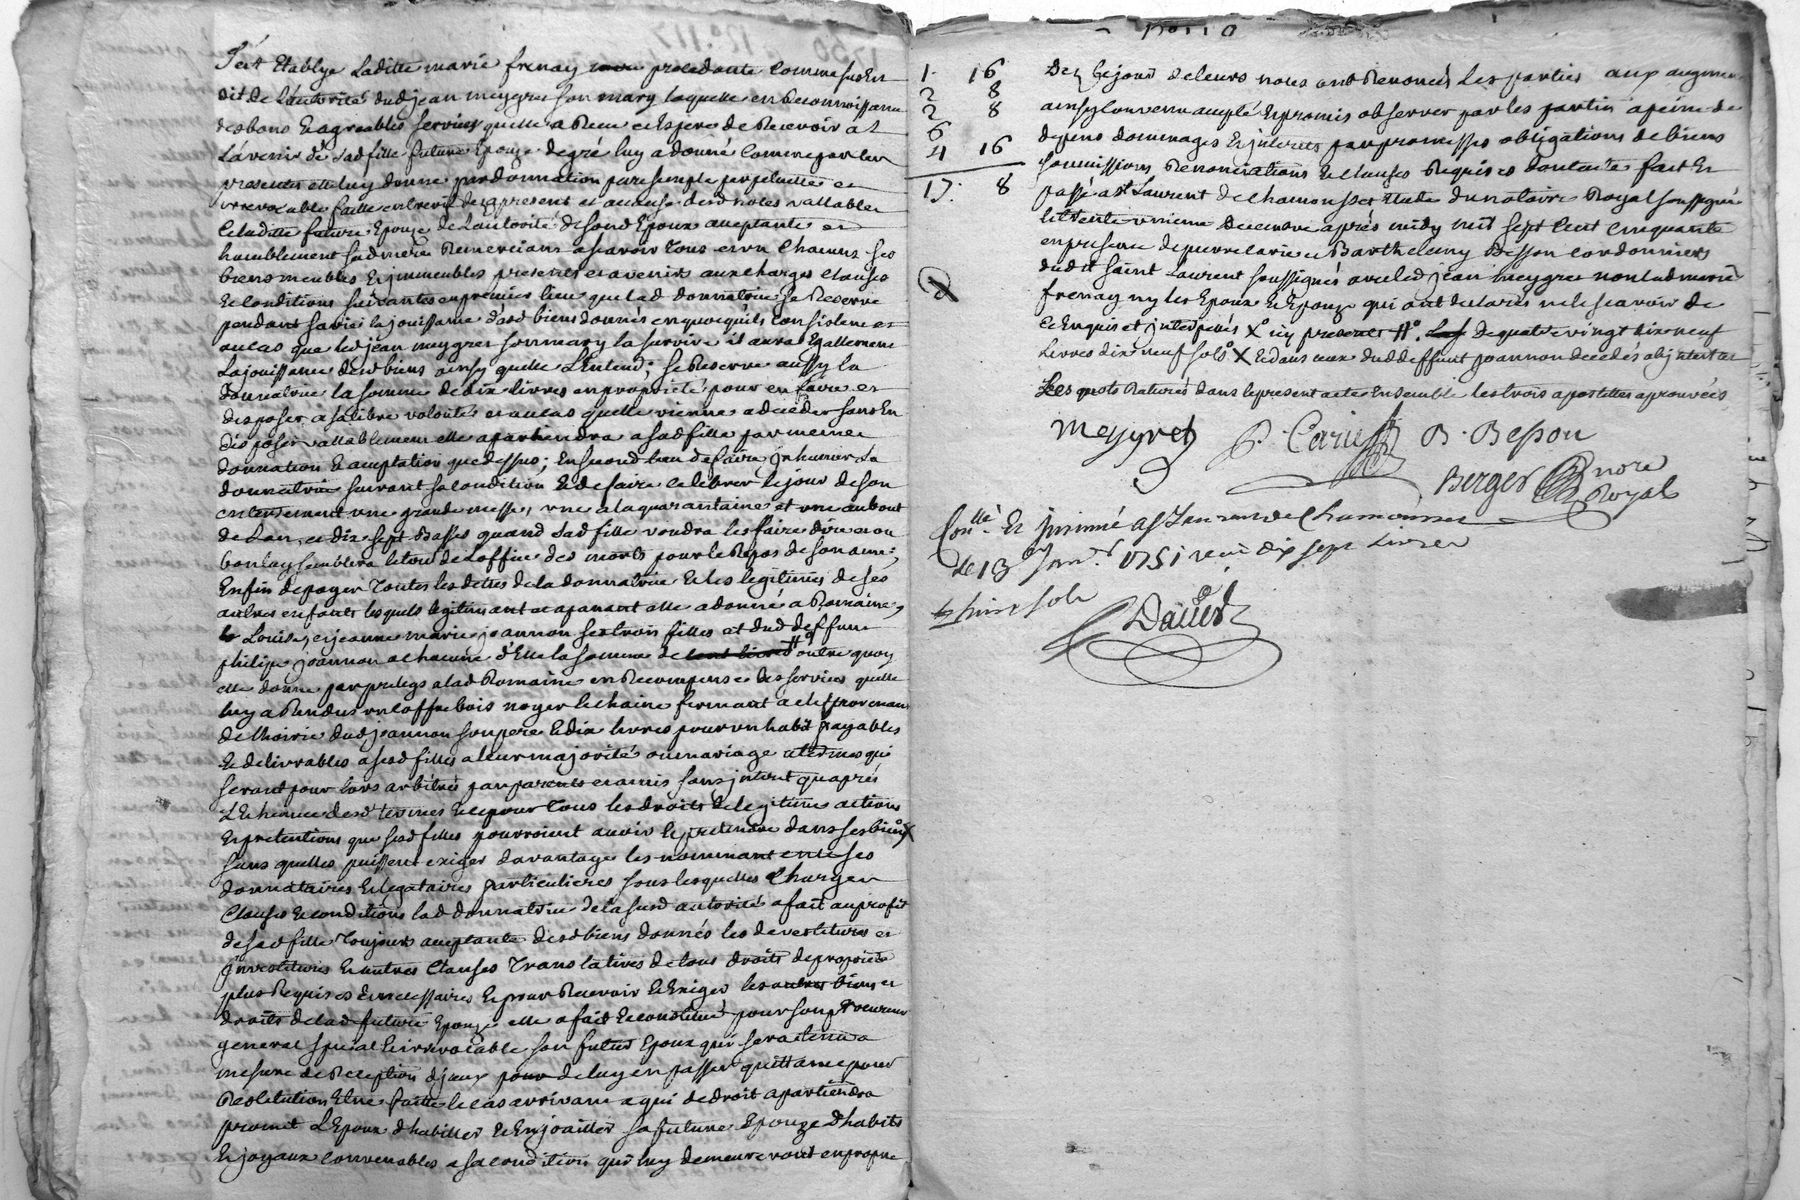 S'est Etablye Laditte marie frenay procedante Comme susEn
dit de l'autorité dud jean meygret son mary laquelle en Reconnoissance
des bons & agreables services quelle a Receu et Espere de Recevoir a
L'avenir de sad fille future Epouze de gré luy a donné Comme par les
presentes elle luy donne par donnation pure simple perpetuelle et
irrevocable faitte entrevifs des apresent et a cause desd noces vallable
Et laditte future Epouze de L'autorité de sond Epoux acceptante et
humblement sad mere Remerciant a scavoir Tous et un Chacuns ses
biens meubles & jmmeubles presents et avenirs aux charges Clauses
& Conditions suivantes en premier lieu que lad donnatrice se Reserve
pendant sa vie la jouissance desd biens donnés en quoy qu'ils consistent et
au cas que led jean meygret son mary la survive il aura Egallement
La jouissance desd biens ainsy quelle L'Entend; se Reserve aussy la
donnatrice la somme de dix livres en proprieté pour en faire et
disposer a sa libre volonté et au cas quelle vienne a deceder sans En
disposer vallablement elle apartiendra a sad fille par meme
donnation & acceptation que dessus; En second lieu de faire jnhumer la
donnatrice suivant sa condition & de faire celebrer le jour de son
enterrement une grande messe, une a la quarantaine et une au bout
de L'an, et dix sept basses quand sad fille voudra les faire dire et ou
bon luy semblera le tout de L'office des morts pour le Repos de son ame;
Enfin de payer Toutes les dettes de la donnatrice & les legitimes de ses
autres enfants lesquels legitimant et apanant elle a donné a Romaine,
Louise, et jeanne marie joannon ses trois filles et dud deffunt
philipe joannon a chacune d'Elle la somme de cent livres # outre quoy
elle donne par preleg a lad Romaine en Recompense des services quelle
luy a Rendus un Coffre bois noyer le chaine fermant a clef provenant
de L'hoirie dud joannon son pere & dix livres pour un habit payables
& delivrables a sesd filles a leur majorité ou mariage a termes qui
seront pour lors arbitrés par parents et amis sans jnterest qu'aprés
L'Echeance desd termes & ce pour Tous les droits de legitime actions
& pretentions que sesd filles pourroient avoir & pretendre dans ses biens X
sans quelles puissent exiger davantage les nommant en ce ses
donnataires & legataires particulieres sous lesquelles Charges
Clauses & conditions lad donnatrice de la susd autorité a fait au profit
de sad fille Toujours acceptante desd biens donnés les devestitures et
jnvestitures & autres Clauses Translatives de tous droits de proprieté
plus Requises & necessaires & pour Recevoir & Exiger les autres biens et
droits de lad future Epouze elle a fait & constitué pour son procureur
general special & irrevocable son futur Epoux qui sera tenu a
mesure de Reception d'jceux de luy en passer quittance pour
Restitution Etre faitte le cas arrivant a qui de droit apartiendra
promet L'Epoux d'habiller & Enjoailler sa future Epouze d'habits
& joyaux convenables a sa condition qui luy demeureront en propre
1. 16
2 8
2 8
6
4 16
17. 8
Dez le jour de leurs noces ont Renoncés les parties aux augments
ainsy Convenu accepté & promis observer par les parties a peine de
depens dommages & jnterets par promesses obligations de biens
soumissions Renonciations & clauses Requises dont acte fait Et
passé a St Laurent de chamousset Etude du notaire Royal soussigné
le trente unieme decembre aprés midy mil sept Cent Cinquante
en presence de pierre Carie et Barthelemy Besson cordonniers
dud st Saint Laurent soussignés avec led jean meygret non lad marie
frenay ny les Epoux & Epouze qui ont declarés ne le scavoir de
ce Enquis et jnterpelés X icy presente #. de quatre vingt dix neuf
Livres dix neuf sols X & dans ceux dud deffunt joannon decedés abjntestat
Les mots Raturés dans le present acte Ensemble les trois apostilles aprouvées
Meygret P. Carie B. Besson
Berger nore
Royal
Conllé & jnsinué a St Laurent de Chamousset
Le 13 Janr. 1751 recu dix sept Livres
huit sols
Daued